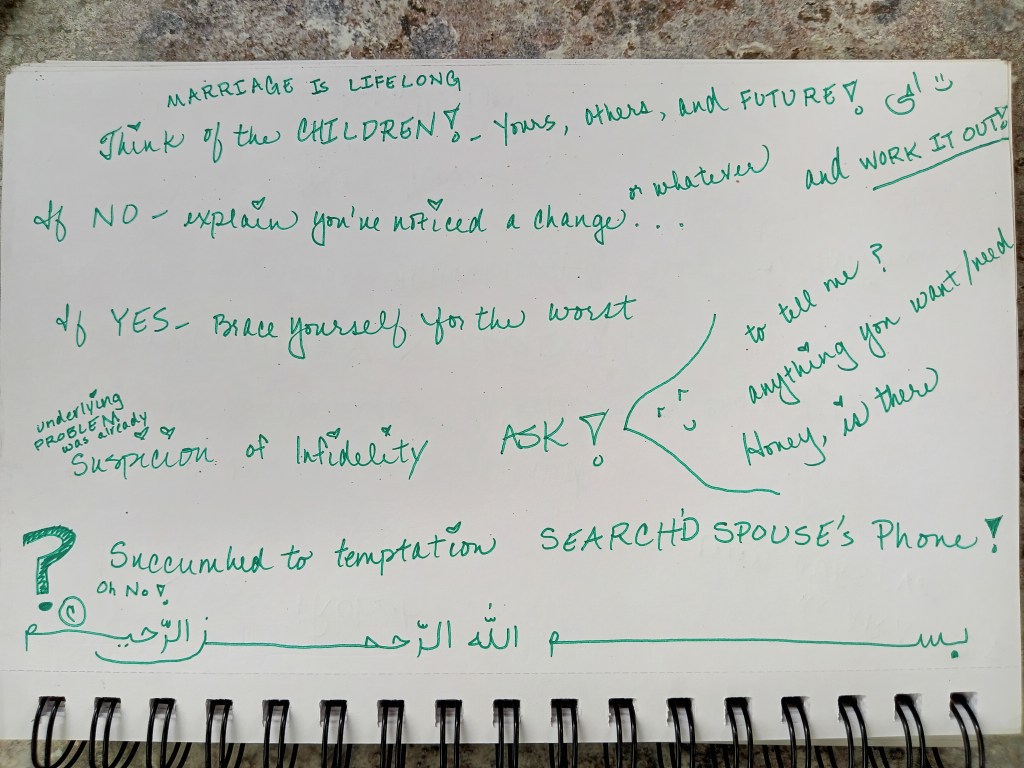 MARRIAGE IS LIFELONG
Think of the CHILDREN! - Yours, others, and FUTURE!
and WORK IT OUT!
or whatever
If NO - explain you've noticed a change ...
If YES - Brace yourself for the worst
to tell me?
anything you want/need
Honey, is there
underlying
PROBLEM
was already
Suspicion of Infidelity ASK!
? Succumbed to temptation SEARCH'D SPOUSE's Phone!
Oh No!
بسم الله الرّحمن الرّحيم